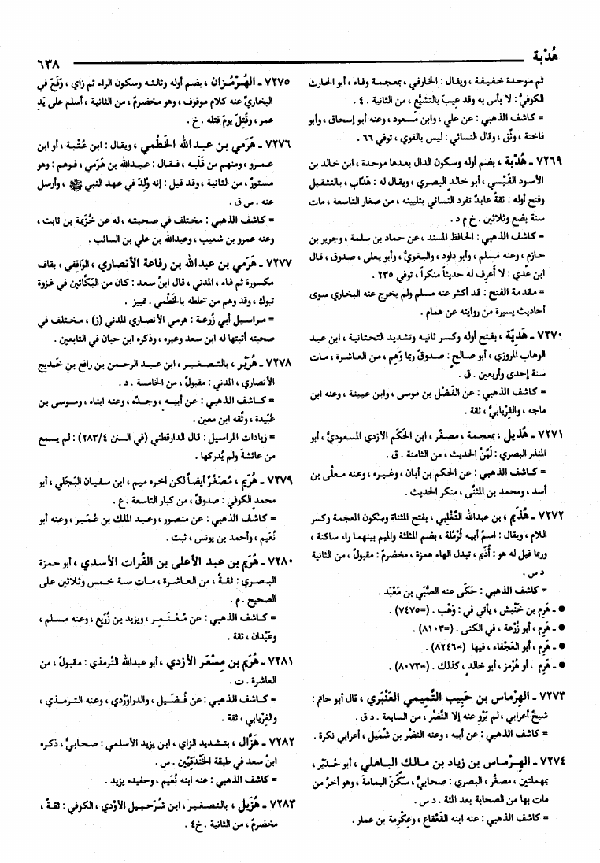 هُدْبة
٦٣٨
ثم موحدة خفيفة ، ويقال : الخارفي ، بمعجمة وفاء ، أبو الحارث
الكوفي : لا بأس به وقد عيب بالتشيُّع ، من الثانية . ٤ .
= كاشف الذهبي : عن علي ، وابن مسعود ، وعنه أبو إسحاق ، وأبو
فاختة ، وثق ، وقال النسائي : ليس بالقوي ، توفي ٦٦ .
٧٢٦٩ ـ هُدْبَة ، بضم أوله وسكون الدال بعدها موحدة ، ابن خالد بن
الأسود القَيْسي ، أبو خالد البصري ، ويقال له : هَدَّاب ، بالتثقيل
وفتح أوله : ثقةٌ عابدٌ تفرد النسائي بتليينه ، من صغار التاسعة ، مات
سنة بضع وثلاثين . خ م د .
= كاشف الذهبي : الحافظ المسند ، عن حماد بن سلمة ، وجرير بن
حازم ، وعنه مسلم ، وأبو داود ، والبغوي ، وأبو يعلى ، صدوق ، قال
ابن عدي : لا أعرف له حديثاً منكراً ، توفي ٢٣٥ .
= مقدمة الفتح : قد أكثر عنه مسلم ولم يخرج عنه البخاري سوى
أحاديث يسيرة من روايته عن همام .
٧٢٧٠ ـ هَدِيَّة ، بفتح أوله وكسر ثانيه وتشديد التحتانية ، ابن عبد
الوهاب المَرْوزي ، أبو صالح : صدوقٌ ربما وَهِم ، من العاشرة ، مات
سنة إحدى وأربعين . ق .
= كاشف الذهبي : عن الفَضْل بن موسى ، وابن عيينة ، وعنه ابن
ماجه ، والفِرْيابيُّ ، ثقة .
٧٢٧١ ـ هُذَيل ، بمعجمة ، مصغَّر ، ابن الحَكَم الأزدي المسعوديُّ ، أبو
المنذر البصري : لَيِّنُ الحديث ، من الثامنة . ق .
= كاشف الذهبي : عن الحكم بن أبان ، وغيره ، وعنه معلَّى بن
أسد ، ومحمد بن المثنَّى ، منكر الحديث .
٧٢٧٢ ـ هُذَيم ، بن عبدالله التَّغْلِبي ، بفتح المثناة وسكون المعجمة وكسر
اللام ، ويقال : اسمُ أبيه ثُرْمُلة ، بضم المثلثة والميم بينهما راء ساكنة ،
وربما قيل له هو : أُدَيْم ، تبدل الهاء همزة ، مخضرمٌ : مقبولٌ ، من الثانية
د س .
= كاشف الذهبي : حَكَى عنه الصُّبَي بن مَعْبَد .
● ـ هَرِم بن خَنْبَش ، يأتي في : وَهْب . (=٧٤٧٥) .
● ـ هَرِم ، أبو زُرْعة ، في الكنى . (=٨١٠٣) .
● ـ هَرِم ، أبو العَجْفاء ، فيها (=٨٢٤٦)
● ـ هَرِم ، أو هُرْمز ، أبو خالد ، كذلك . (=٨٠٧٣) .
٧٢٧٣ ـ الهِرْماس بن حَبِيب التَّميمي العَنْبَري ، قال أبو حاتم :
شيخٌ أعرابي ، لم يَرْوِ عنه إلا النَّضْر ، من السابعة . د ق .
= كاشف الذهبي : عن أبيه ، وعنه النضْر بن شُمَيل ، أعرابي نكرة .
٧٢٧٤ ـ الهِرْماس بن زياد بن مالك الباهلي ، أبو حُدَيْر ،
بمهملتين ، مصغَّر ، البصري : صحابيٌّ ، سكَنَ اليمامة ، وهو آخر من
مات بها من الصحابة بعد المئة . د س .
= كاشف الذهبي : عنه ابنه القَعْقاع ، وعِكْرمة بن عمار .
٧٢٧٥ ـ الهُرْمُزان ، بضم أوله وثالثه وسكون الراء ثم زاي ، وَقَع في
البخاري عنه كلام موقوف ، وهو مخضرمٌ ، من الثانية ، أسلم على يَدِ
عمر ، وقُتِل يومَ قتله . خ .
٧٢٧٦ ـ هَرَمي بن عبدالله الخَطْمي ، ويقال : ابن عُتْبة ، أو ابن
عمرو ، ومنهم من قَلَبه ، فقال : عبدالله بن هَرَمي ، فوَهم : وهو
مستورٌ ، من الثانية ، وقد قيل : إنه وُلِدَ في عهد النبي ﷺ ، وأرسل
عنه . س ق .
= كاشف الذهبي : مختلف في صحبته ، له عن خُزيمة بن ثابت ،
وعنه عمرو بن شعيب ، وعبدالله بن علي بن السائب .
٧٢٧٧ ـ هَرَمي بن عبدالله بن رفاعة الأنصاري ، الواقفي ، بقاف
مكسورة ثم فاء ، المدني ، قال ابنُ سعد : كان من البكَّائين في غزوة
تبوك ، وقد وهم من خلطه بالخَطْمي . تمييز .
= مراسيل أبي زُرعة : هرمي الأنصاري المدني (ز) ، مختلف في
صحبته أثبتها له ابن سعد وغيره ، وذكره ابن حبان في التابعين .
٧٢٧٨ ـ هُرَيْر ، بالتصغير ، ابن عبد الرحمن بن رافع بن خَدِيج
الأنصاري ، المدني : مقبولٌ ، من الخامسة . د .
= كاشف الذهبي : عن أبيه ، وجدِّه ، وعنه ابناه ، وموسى بن
عُبيدة ، وثقه ابن معين .
= زيادات المراسيل : قال الدارقطني (في السنن ٢٨٣/٤) : لم يسمع
من عائشة ولم يُدركها .
٧٢٧٩ ـ هُرَيم ، مُصَغَّرٌ أيضاً لكن آخره ميم ، ابن سفيان البَجَلي ، أبو
محمدٍ الكوفي : صدوقٌ ، من كبار التاسعة . ع .
= كاشف الذهبي : عن منصور ، وعبد الملك بن عُمير ، وعنه أبو
نُعَيم ، وأحمد بن يونس ، ثبت .
٧٢٨٠ ـ هُرَيم بن عبد الأعلى بن الفُرات الأسدي ، أبو حمزة
البصري : ثقةٌ ، من العاشرة ، مات سنة خمس وثلاثين على
الصحيح . م .
= كاشف الذهبي : عن مُعْتَمِر ، ويزيد بن زُرَيْع ، وعنه مسلم ،
وعَبْدان ، ثقة .
٧٢٨١ ـ هُرَيم بن مِسْعَر الأزدي ، أبو عبدالله التِّرمذي : مقبولٌ ، من
العاشرة . ت .
= كاشف الذهبي : عن فُضَيل ، والدراوَرْدي ، وعنه الترمذي ،
والفِرْيابي ، ثقة .
٧٢٨٢ ـ هَزَّال ، بتشديد الزاي ، ابن يزيد الأسلمي : صحابيٌّ ، ذكره
ابنُ سعد في طبقة الخَنْدَقِيِّين . س .
= كاشف الذهبي : عنه ابنه نُعَيم ، وحفيده يزيد .
٧٢٨٣ ـ هُزَيل ، بالتصغير ، ابن شُرَحبيل الأوْدي ، الكوفي : ثقةٌ ،
مخضرمٌ ، من الثانية . خ٤ .